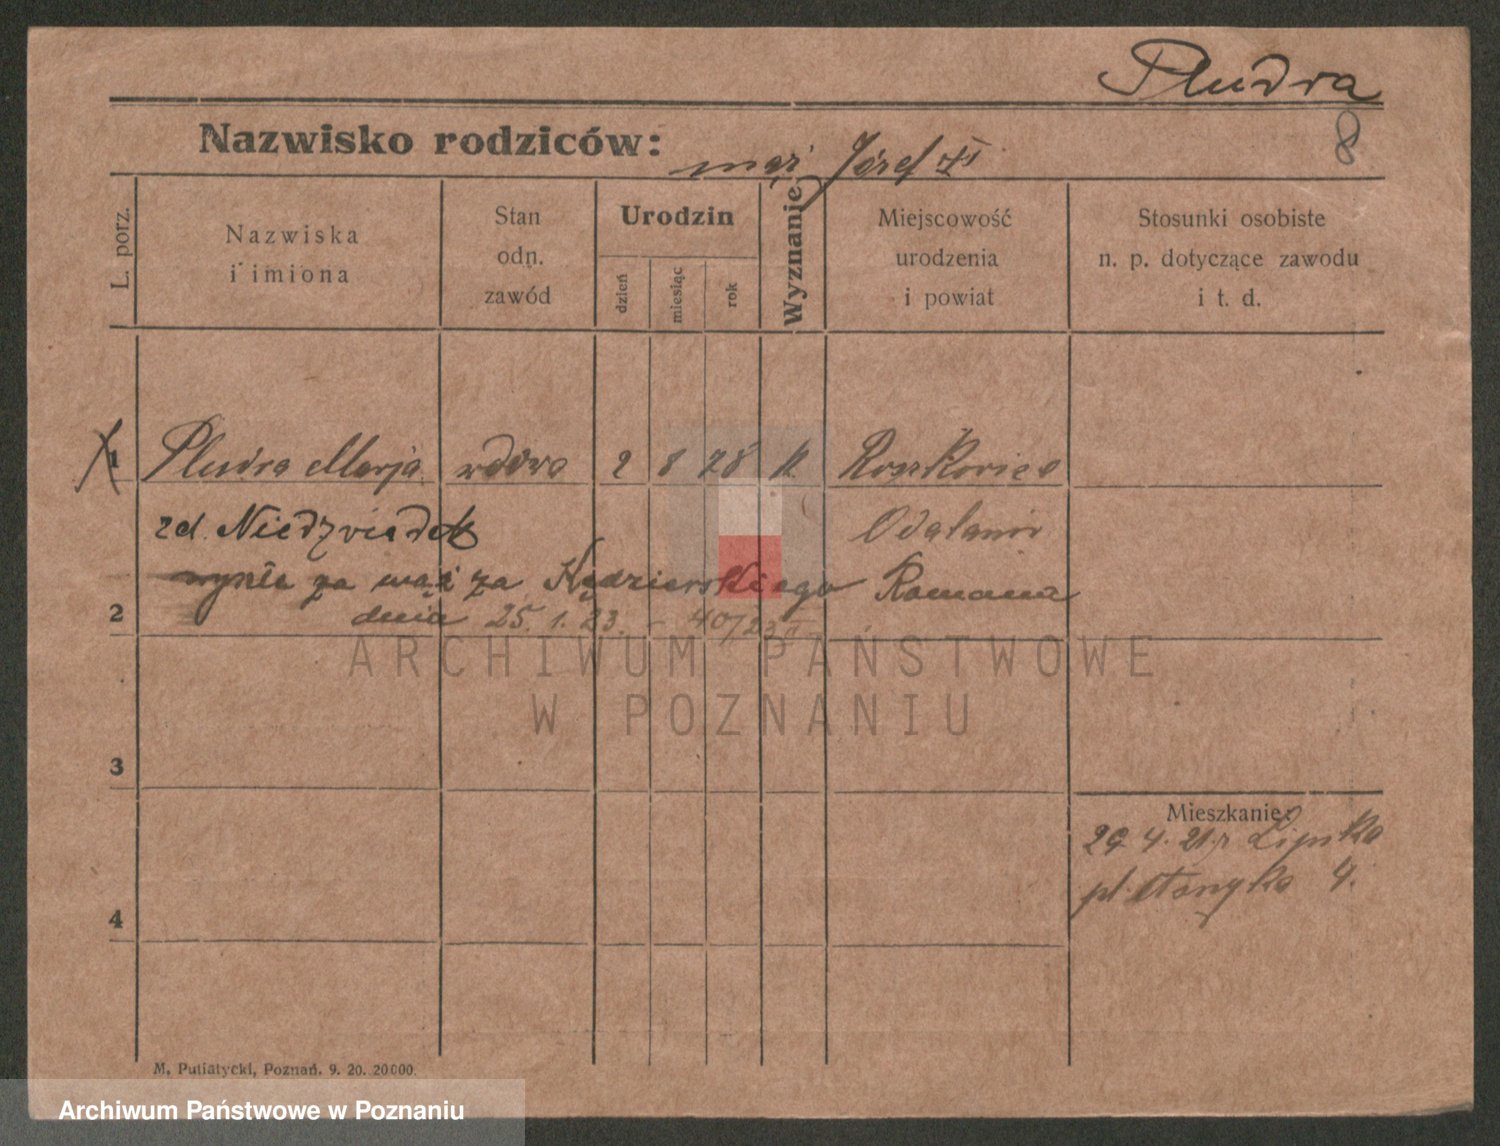 Pludra
8
Nazwisko rodziców: mąż Józef
L. porz.
Nazwiska i imiona
Stan odn. zawód
Urodzin
dzień
miesiąc
rok
Wyznanie
Miejscowość urodzenia i powiat
Stosunki osobiste n. p. dotyczące zawodu i t. d.
1 Pludra Marja wdowa 2 8 78 k Roszkowice
zd. Niedzviadek Odolanów
wyszła za mąż za Kędzierskiego Romana
2 dnia 25. 1. 23. - 40/23
ARCHIWUM PAŃSTWOWE
W POZNANIU
3
Mieszkanie:
29. 4. 21. r Lipsko
pl. 4.
4
M. Putiatycki, Poznań. 9. 20. 20000.
Archiwum Państwowe w Poznaniu